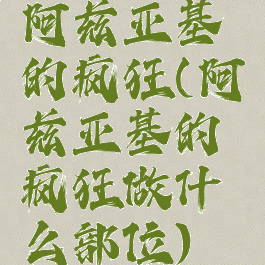 阿兹亚基
的疯狂(阿
兹亚基的
疯狂做什
么部位)